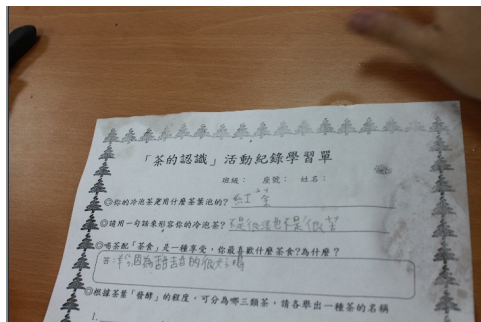 「茶的認識」活動紀錄學習單
班級： 座號： 姓名：
◎你的冷泡茶是用什麼茶葉泡的? 紅
◎請用一句話來形容你的冷泡茶? 不是很 也不是很苦
◎喝茶配「茶食」是一種享受，你最喜歡什麼茶食?為什麼？
答： 因為甜甜的很好
◎根據茶葉「發酵」的程度，可分為哪三類茶，請各舉出一種茶的名稱
1.